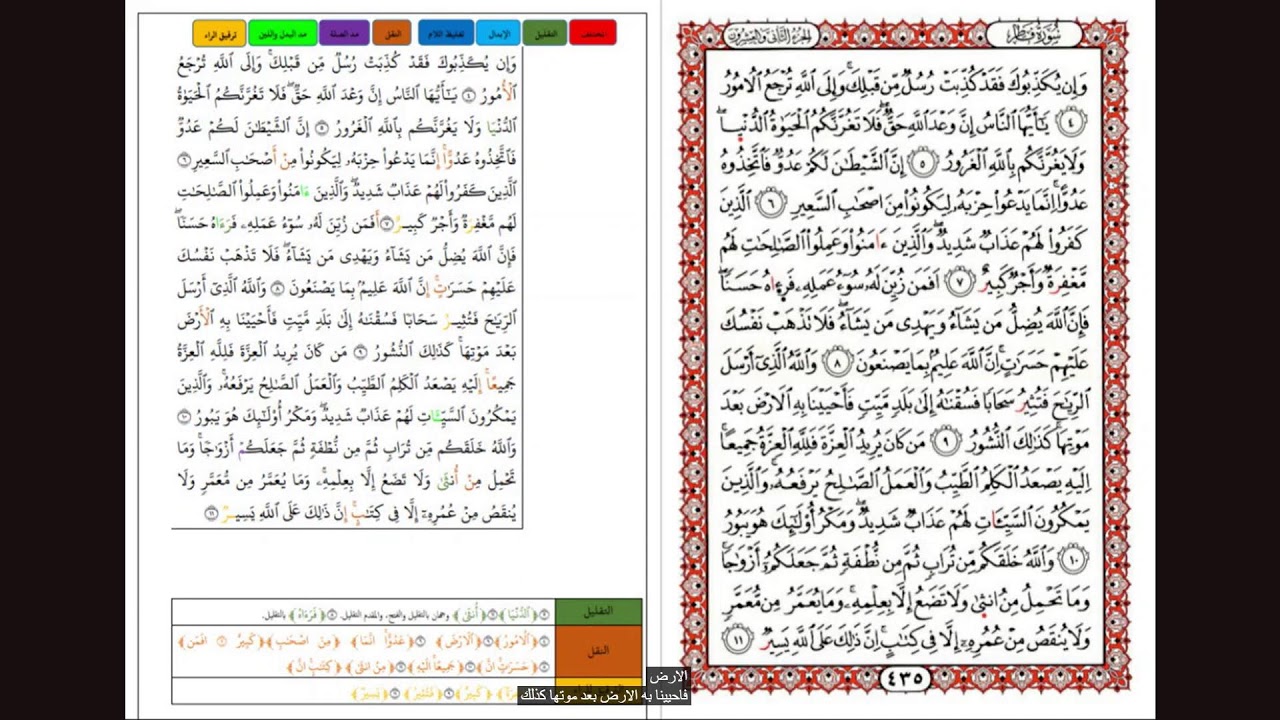 سُورَةُ فَاطِر
الجزء الثاني والعشرون
وَإِن يُكَذِّبُوكَ فَقَدْ كُذِّبَتْ رُسُلٌ مِّن قَبْلِكَ وَإِلَى اَللَّهِ تُرْجَعُ اُلُامُورُ
٤ يَٰٓأَيُّهَا اَلنَّاسُ إِنَّ وَعْدَ اَللَّهِ حَقّٞ فَلَا تَغُرَّنَّكُمُ اُلْحَيَوٰةُ اُلدُّنْيٜا
وَلَا يَغُرَّنَّكُم بِاللَّهِ اِلْغَرُورُ ٥ إِنَّ اَلشَّيْطَٰنَ لَكُمْ عَدُوّٞ فَاتَّخِذُوهُ
عَدُوًّا اِنَّمَا يَدْعُوا حِزْبَهُۥ لِيَكُونُوا مِنَ اَصْحَٰبِ اِلسَّعِيرِ ٦ اَلَّذِينَ
كَفَرُوا لَهُمْ عَذَابٞ شَدِيدٞ وَالَّذِينَ ءَامَنُوا وَعَمِلُوا اُلصَّٰلِحَٰتِ لَهُم
مَّغْفِرَةٞ وَأَجْرٞ كَبِيرٌ ٧ اَفَمَن زُيِّنَ لَهُۥ سُوٓءُ عَمَلِهِۦ فَرِءٜاهُ حَسَنٗا
فَإِنَّ اَللَّهَ يُضِلُّ مَن يَشَآءُ وَيَهْدِى مَن يَشَآءُ فَلَا تَذْهَبْ نَفْسُكَ
عَلَيْهِمْ حَسَرَٰتٍ اِنَّ اَللَّهَ عَلِيمُۢ بِمَا يَصْنَعُونَ ٨ وَاللَّهُ اُلَّذِىٓ أَرْسَلَ
اَلرِّيَٰحَ فَتُثِيرُ سَحَابٗا فَسُقْنَٰهُ إِلَىٰ بَلَدٖ مَّيِّتٖ فَأَحْيَيْنَا بِهِ اِلَارْضَ بَعْدَ
مَوْتِهَا كَذَٰلِكَ اَلنُّشُورُ ٩ مَن كَانَ يُرِيدُ اُلْعِزَّةَ فَلِلَّهِ اِلْعِزَّةُ جَمِيعًا
اِلَيْهِ يَصْعَدُ اُلْكَلِمُ اُلطَّيِّبُ وَالْعَمَلُ اُلصَّٰلِحُ يَرْفَعُهُۥ وَالَّذِينَ
يَمْكُرُونَ اَلسَّيِّـَٔاتِ لَهُمْ عَذَابٞ شَدِيدٞ وَمَكْرُ أُوْلَٰٓئِكَ هُوَ يَبُورُ
١٠ وَاللَّهُ خَلَقَكُم مِّن تُرَابٖ ثُمَّ مِن نُّطْفَةٖ ثُمَّ جَعَلَكُمُۥٓ أَزْوَٰجٗا
وَمَا تَحْمِلُ مِنُ انثٜىٰ وَلَا تَضَعُ إِلَّا بِعِلْمِهِۦ وَمَا يُعَمَّرُ مِن مُّعَمَّرٖ
وَلَا يُنقَصُ مِنْ عُمُرِهِۦٓ إِلَّا فِى كِتَٰبٍ اِنَّ ذَٰلِكَ عَلَى اَللَّهِ يَسِيرٞ ١١
٤٣٥
التقليل
الإمالة
تغليظ اللام
النقل
مد الصلة
مد البدل واللين
ترقيق الراء
وَإِن يُكَذِّبُوكَ فَقَدْ كُذِّبَتْ رُسُلٌ مِّن قَبْلِكَۚ وَإِلَى ٱللَّهِ تُرْجَعُ
ٱلْأُمُورُ ٤ يَٰٓأَيُّهَا ٱلنَّاسُ إِنَّ وَعْدَ ٱللَّهِ حَقّٞۖ فَلَا تَغُرَّنَّكُمُ ٱلْحَيَوٰةُ
ٱلدُّنْيَا وَلَا يَغُرَّنَّكُم بِٱللَّهِ ٱلْغَرُورُ ٥ إِنَّ ٱلشَّيْطَٰنَ لَكُمْ عَدُوّٞ
فَٱتَّخِذُوهُ عَدُوًّاۚ إِنَّمَا يَدْعُوا۟ حِزْبَهُۥ لِيَكُونُوا۟ مِنْ أَصْحَٰبِ ٱلسَّعِيرِ ٦
ٱلَّذِينَ كَفَرُوا۟ لَهُمْ عَذَابٞ شَدِيدٞۖ وَٱلَّذِينَ ءَامَنُوا۟ وَعَمِلُوا۟ ٱلصَّٰلِحَٰتِ
لَهُم مَّغْفِرَةٞ وَأَجْرٞ كَبِيرٌ ٧ أَفَمَن زُيِّنَ لَهُۥ سُوٓءُ عَمَلِهِۦ فَرَءَاهُ حَسَنٗاۖ
فَإِنَّ ٱللَّهَ يُضِلُّ مَن يَشَآءُ وَيَهْدِى مَن يَشَآءُۖ فَلَا تَذْهَبْ نَفْسُكَ
عَلَيْهِمْ حَسَرَٰتٍۚ إِنَّ ٱللَّهَ عَلِيمُۢ بِمَا يَصْنَعُونَ ٨ وَٱللَّهُ ٱلَّذِىٓ أَرْسَلَ
ٱلرِّيَٰحَ فَتُثِيرُ سَحَابٗا فَسُقْنَٰهُ إِلَىٰ بَلَدٖ مَّيِّتٖ فَأَحْيَيْنَا بِهِ ٱلْأَرْضَ
بَعْدَ مَوْتِهَاۚ كَذَٰلِكَ ٱلنُّشُورُ ٩ مَن كَانَ يُرِيدُ ٱلْعِزَّةَ فَلِلَّهِ ٱلْعِزَّةُ
جَمِيعًاۚ إِلَيْهِ يَصْعَدُ ٱلْكَلِمُ ٱلطَّيِّبُ وَٱلْعَمَلُ ٱلصَّٰلِحُ يَرْفَعُهُۥۚ وَٱلَّذِينَ
يَمْكُرُونَ ٱلسَّيِّـَٔاتِ لَهُمْ عَذَابٞ شَدِيدٞۖ وَمَكْرُ أُو۟لَٰٓئِكَ هُوَ يَبُورُ ١٠
وَٱللَّهُ خَلَقَكُم مِّن تُرَابٖ ثُمَّ مِن نُّطْفَةٖ ثُمَّ جَعَلَكُمْ أَزْوَٰجٗاۚ وَمَا
تَحْمِلُ مِنْ أُنثَىٰ وَلَا تَضَعُ إِلَّا بِعِلْمِهِۦۚ وَمَا يُعَمَّرُ مِن مُّعَمَّرٖ وَلَا
يُنقَصُ مِنْ عُمُرِهِۦٓ إِلَّا فِى كِتَٰبٍۚ إِنَّ ذَٰلِكَ عَلَى ٱللَّهِ يَسِيرٞ ١١
التقليل ﴿ٱلدُّنْيَا﴾ ﴿أُنثَىٰ﴾ وهمان بالتقليل والفتح، والمقدم التقليل. ﴿فَرَءَاهُ﴾ بالتقليل.
النقل ﴿اُلُامُورُ﴾ ﴿اِلَارْضَ﴾ ﴿عَدُوًّا اِنَّمَا﴾ ﴿مِنَ اَصْحَٰبِ﴾ ﴿كَبِيرٌ ٧ اَفَمَن﴾
﴿حَسَرَٰتٍ اِنَّ﴾ ﴿جَمِيعًا اِلَيْهِ﴾ ﴿مِنُ انثَىٰ﴾ ﴿كِتَٰبٍ اِنَّ﴾
﴿كَبِيرٌ﴾ ﴿فَتُثِيرُ﴾ ﴿يَسِيرٞ﴾
الارض
فاحيينا به الارض بعد موتها كذلك